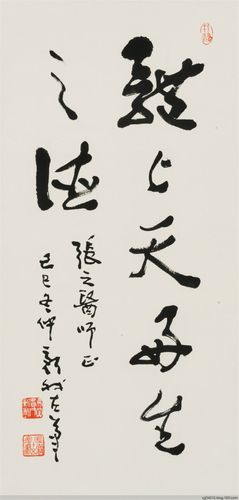 體上天好生
之德
張之醫師正
己巳冬仲